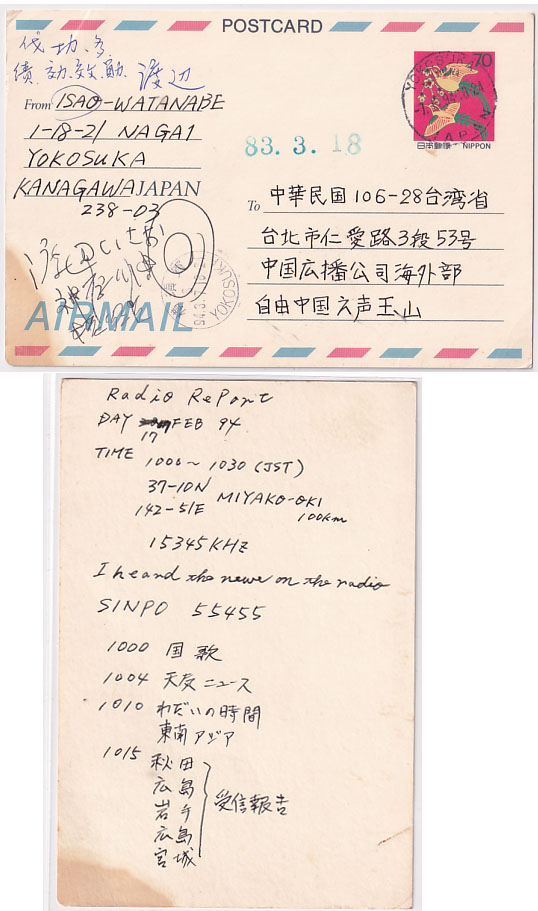 POSTCARD
功、多
績、効、效、勛、渡辺
From ISAO-WATANABE
1-18-21 NAGAI
YOKOSUKA
KANAGAWA JAPAN
238-03
70
日本郵便 NIPPON
83.3.18
To 中華民国 106-28台湾省
台北市仁愛路3段53号
中国広播公司海外部
自由中国之声王山
YOKOSUKA
AIRMAIL
Radio RePort
DAY 17 FEB 94
TIME 1000~1030 (JST)
37-10N MIYAKO-OKI
142-51E 100km
15345KHz
I heard the news on the radio
SINPO 55455
1000 国歌
1004 天気ニュース
1010 わだいの時間
東南アジア
1015 秋田
広島
岩手
広島
宮城
受信報告